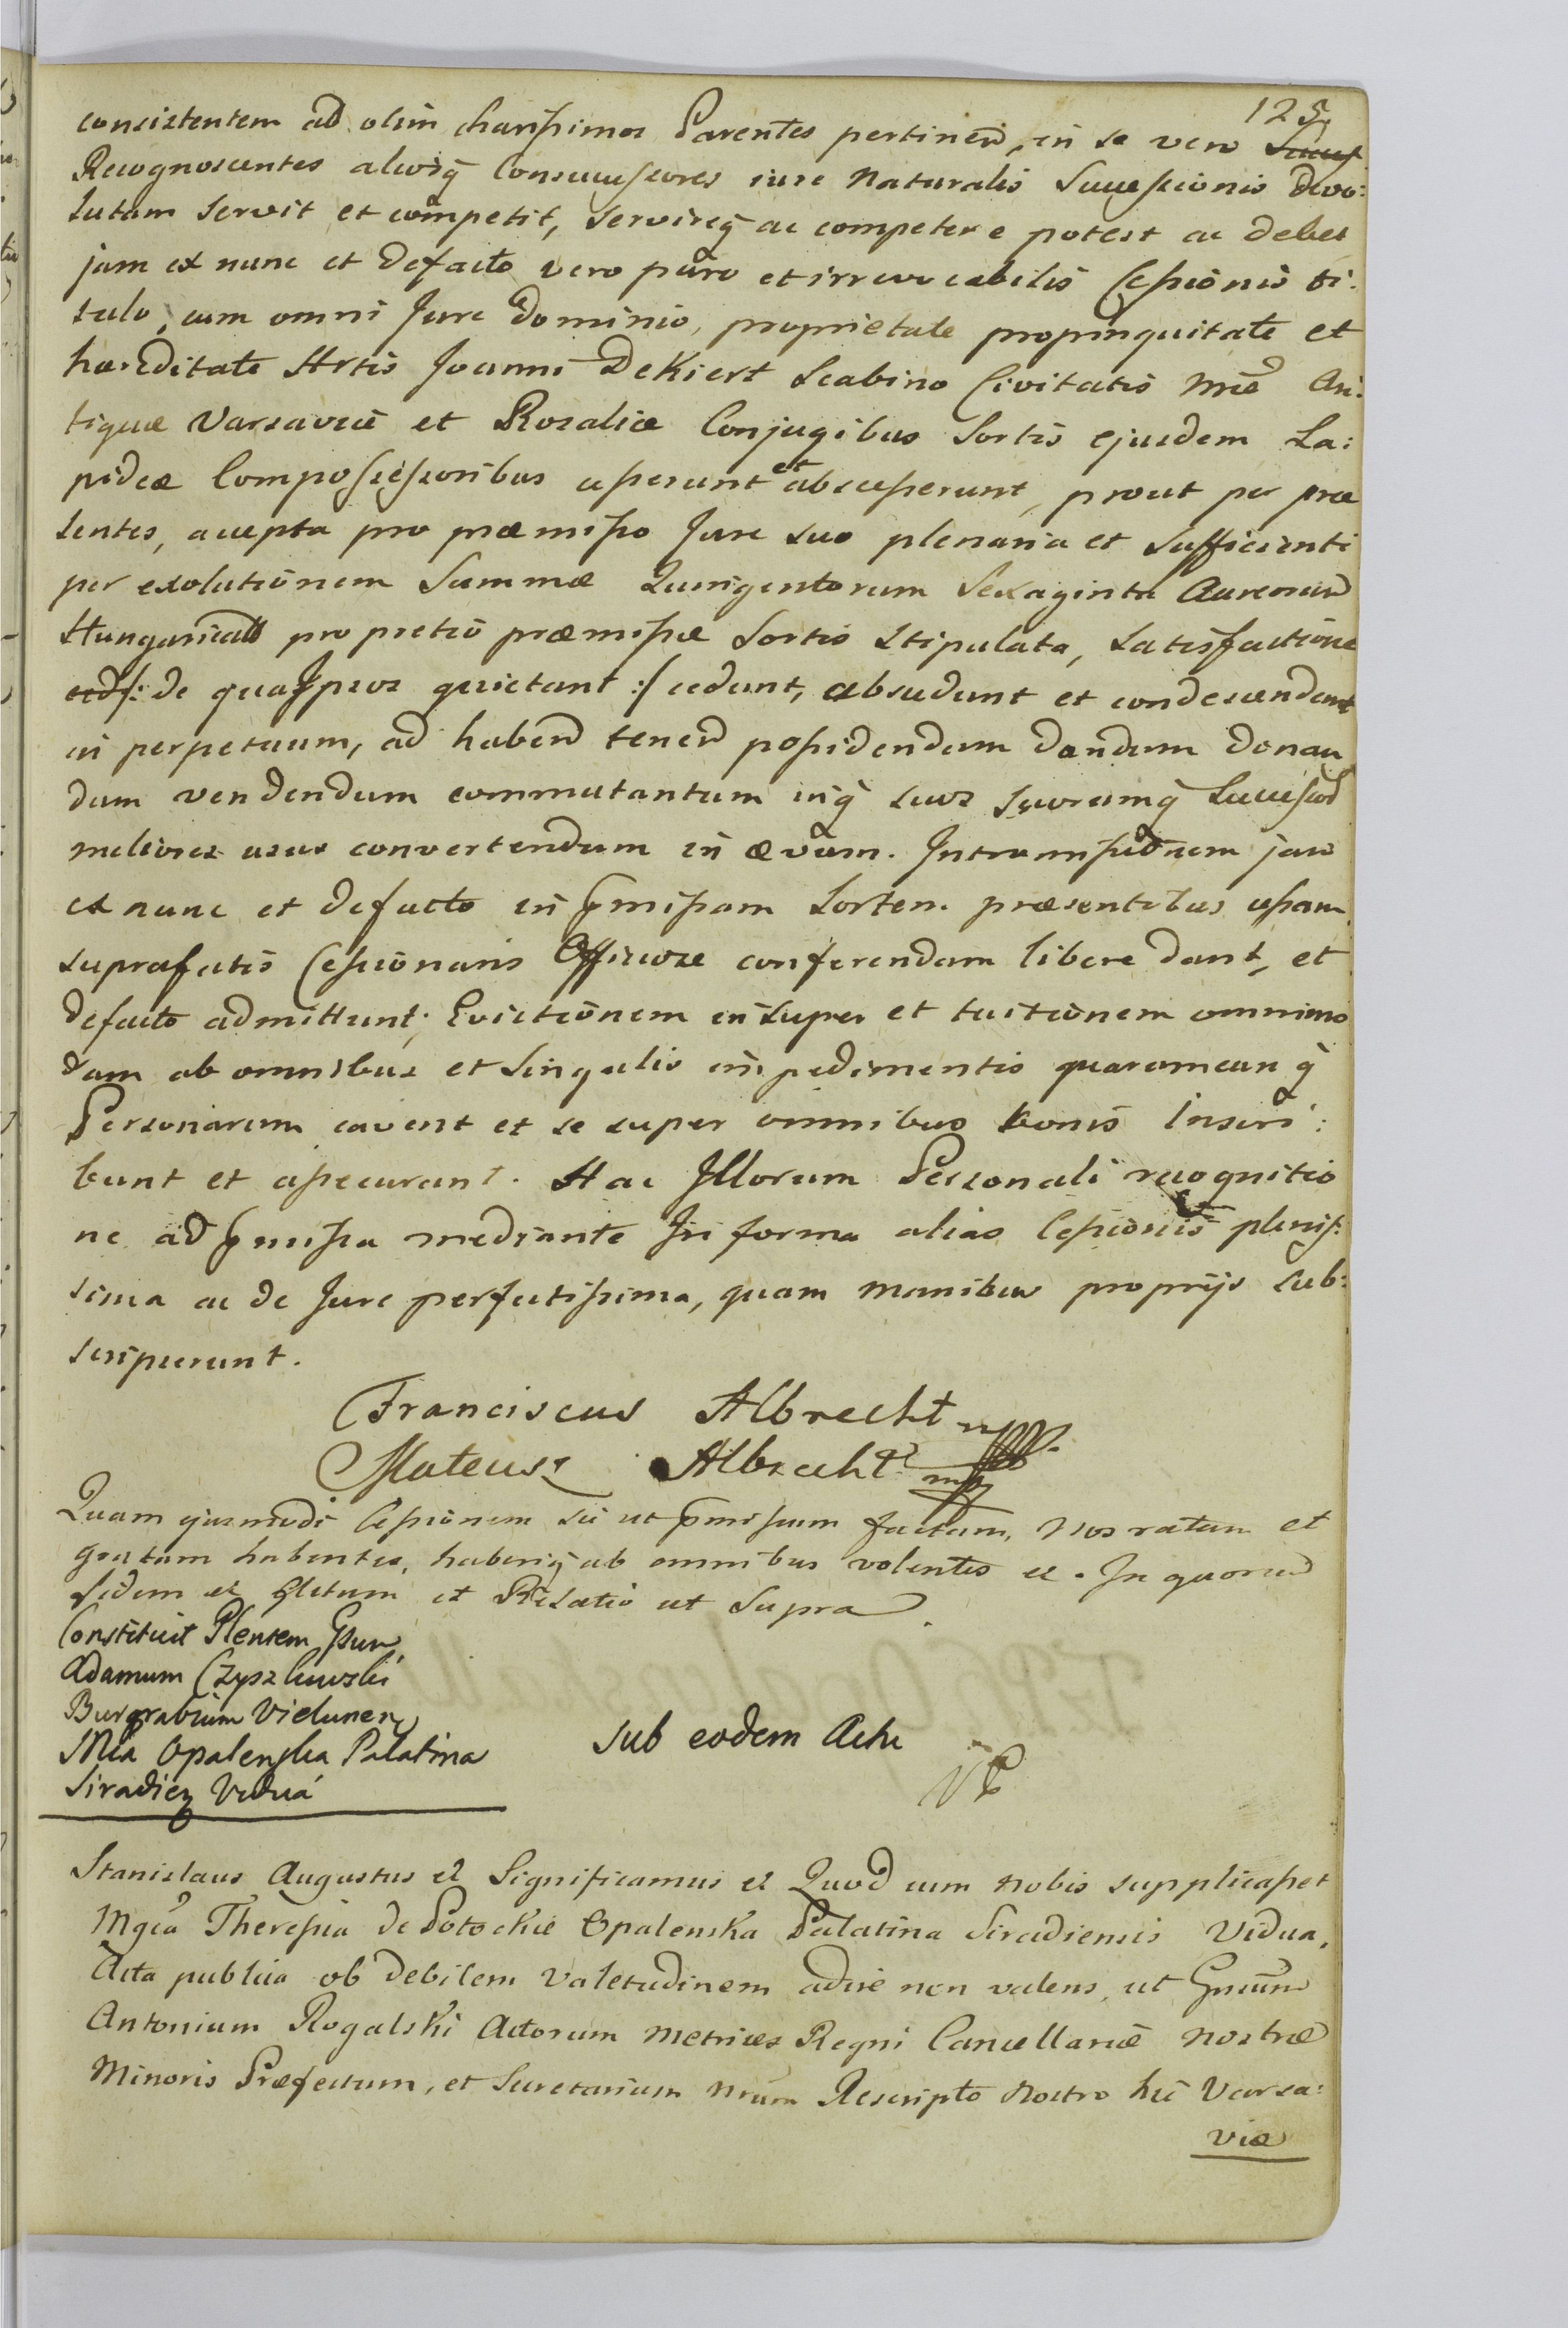 125
consistentem ad olim charissimos Parentes pertinen, in se vero Success
Recognoscentes aliosq Consuccessores iure Naturalis Successionis devo:
lutam servit et competit, servireq ac competere potest ac debet
jam ex nunc et defacto vero puro et irrevocabilis Cessionis ti:
tulo, cum omni Jure Dominio, proprietate propinquitate et
hæreditate Hrtis Joanni Dekiert Scabino Civitatis Nræ An:
tiquæ Varsaviæ et Rosaliæ Conjugibus Sortis ejusdem La:
pideæ Compossessoribus cesserunt et abscesserunt, prout per præ
sentes, accepta pro præmisso Jure suo plenaria et sufficienti
per exolutionem Summæ Quingentorum Sexaginta Aureorum
Hungarical pro pretio præmissæ Sortis stipulata, Satisfactione
ced /: de qua Ipsos quietant :/ cedunt, abscedunt et condescendunt
in perpetuum, ad habend tenend possidendum dandum donan
dum vendendum commutantum inq suos suorumq Success
meliores usus convertendum in ævum. Intromissionem jam
ex nunc et defacto in pmissam Sortem præsentibus cessam
suprafatis Cessionariis Officiose conferendam libere dant, et
defacto admittunt; Evictionem insuper et tuitionem omnimo
dam ab omnibus et singulis impedimentis quarumcunq
Personarum cavent et se super omnibus bonis Inscri:
bunt et assecurant. Hac Illorum Personali recognitio
ne ad pmissa mediante In forma alias Cessionis plenis:
sima ac de Jure perfectissima, quam manibus proprijs sub:
scripserunt.
Franciscus Albrecht mpp
Mateusz Albrecht mpp
Quam ejusmodi Cessionem sic ut pmissum factam, Nos ratam et
gratam habentes, haberiq ab omnibus volentes et. In quorum
fidem et et Relatio ut Supra.
Constituit Plentem Gsum
Adamum Czyszkowski
Burgrabium Vielunen
Mca Opalenska Palatina
Siradien Vidua
Sub eodem Actu
Stanislaus Augustus et Significamus et Quod cum Nobis supplicasset
Mgca Theressia de Potockie Opalenska Palatina Siradiensis Vidua,
Acta publica ob debilem Valetudinem adire non valens, ut Gnsum
Antonium Rogalski Actorum Metrices Regni Cancellariæ Nostræ
Minoris Præfectum, et Secretarium Nrum Rescripto Nostro hic Varsa:
viæ